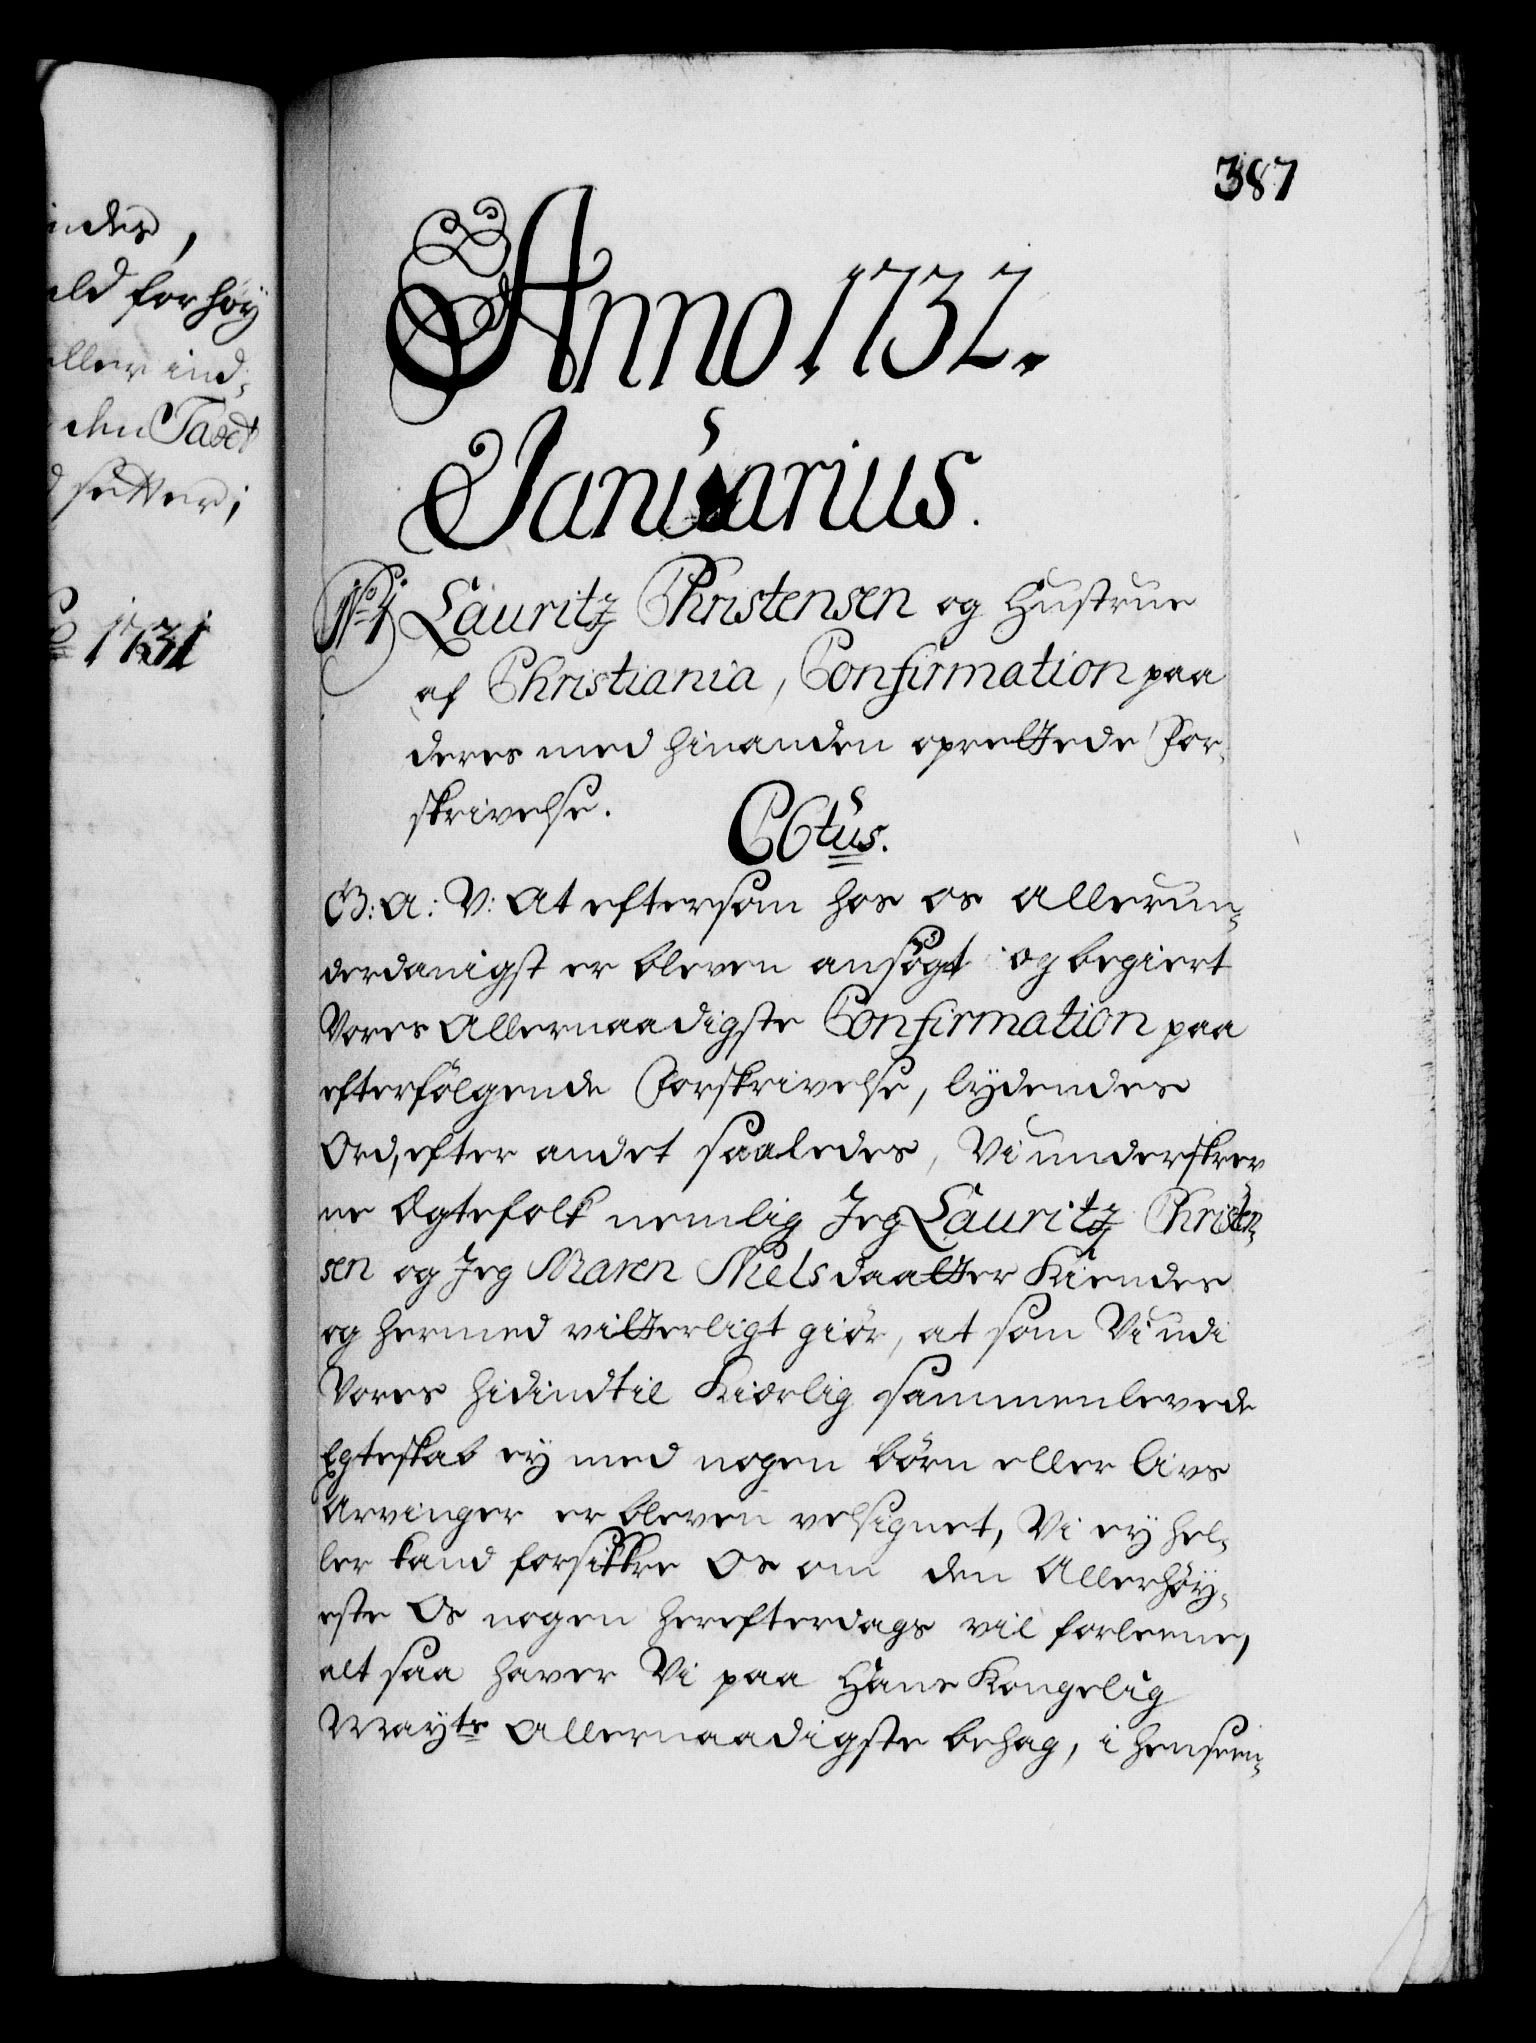 387
inder,
ald forhøy
eller ind-
den Tabet
d setter;
1731
Anno 1732.
Januarius.
No 1 Lauritz Christensen og Hustrue
af Christiania, Confirmation paa
deres med hinanden oprettede For-
skrivelse.
C6tus.
G: A: V: At eftersom hos os allerun-
derdanigst er bleven ansøgt og begiert
Vores Allernaadigste Confirmation paa
efterfølgende Forskrivelse, lydendes
Ord, efter andet saaledes, Vi underskrev
ne Egtefolk nemlig Jeg Lauritz Christen-
sen og Jeg Maren Nielsdaatter Kiendes
og hermed vitterligt giør, at som Vi udi
Vores hidindtil Kiærlig sammenlevede
Egteskab ey med nogen børn eller Livs
Arvinger er bleven velsignet, Vi ey hel-
ler kand forsikkre Os om den Allerhøy-
este Os nogen herefterdags vil forleene,
alt saa haver Vi paa Hans Kongelig
Mayts Allernaadigste behag, i henseen-